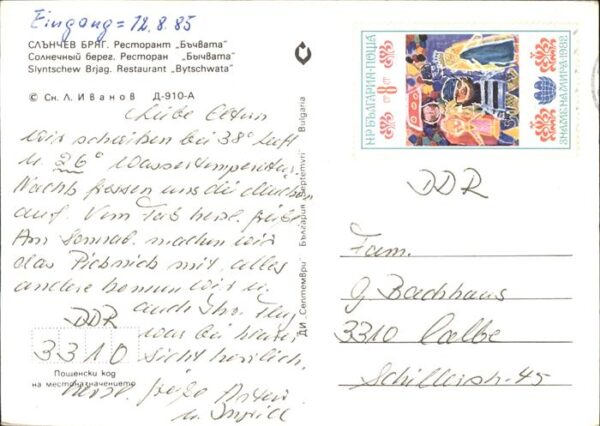 Eingang = 12.8.85
СЛЪНЧЕВ БРЯГ. Ресторант „Бъчвата“
Солнечный берег. Ресторан „Бычвата“
Slyntschew Brjag. Restaurant „Bytschwata“
© Сн. Л. Иванов Д-910-А
Liebe Eltern
Wir schwitzen bei 38° Luft
u. 26° Wassertemperatur.
Nachts fressen uns die Mücken
auf. Vom
Am Sonnab. machen wir
das Picknick mit, alles
andere kennen wir u.
auch Ihr. Flug
war bei
Sicht herrlich.
Herzl. Grüße
u. Ingrid
DDR
3310
Пощенски код
на местоназначението
ДИ „Септември“ България Septemvri Bulgaria
НР БЪЛГАРИЯ·ПОЩА
8 СТ
ЗНАМЕ НА МИРА·1982
DDR
Fam.
G Bachhaus
3310 Calbe
Schillerstr-45